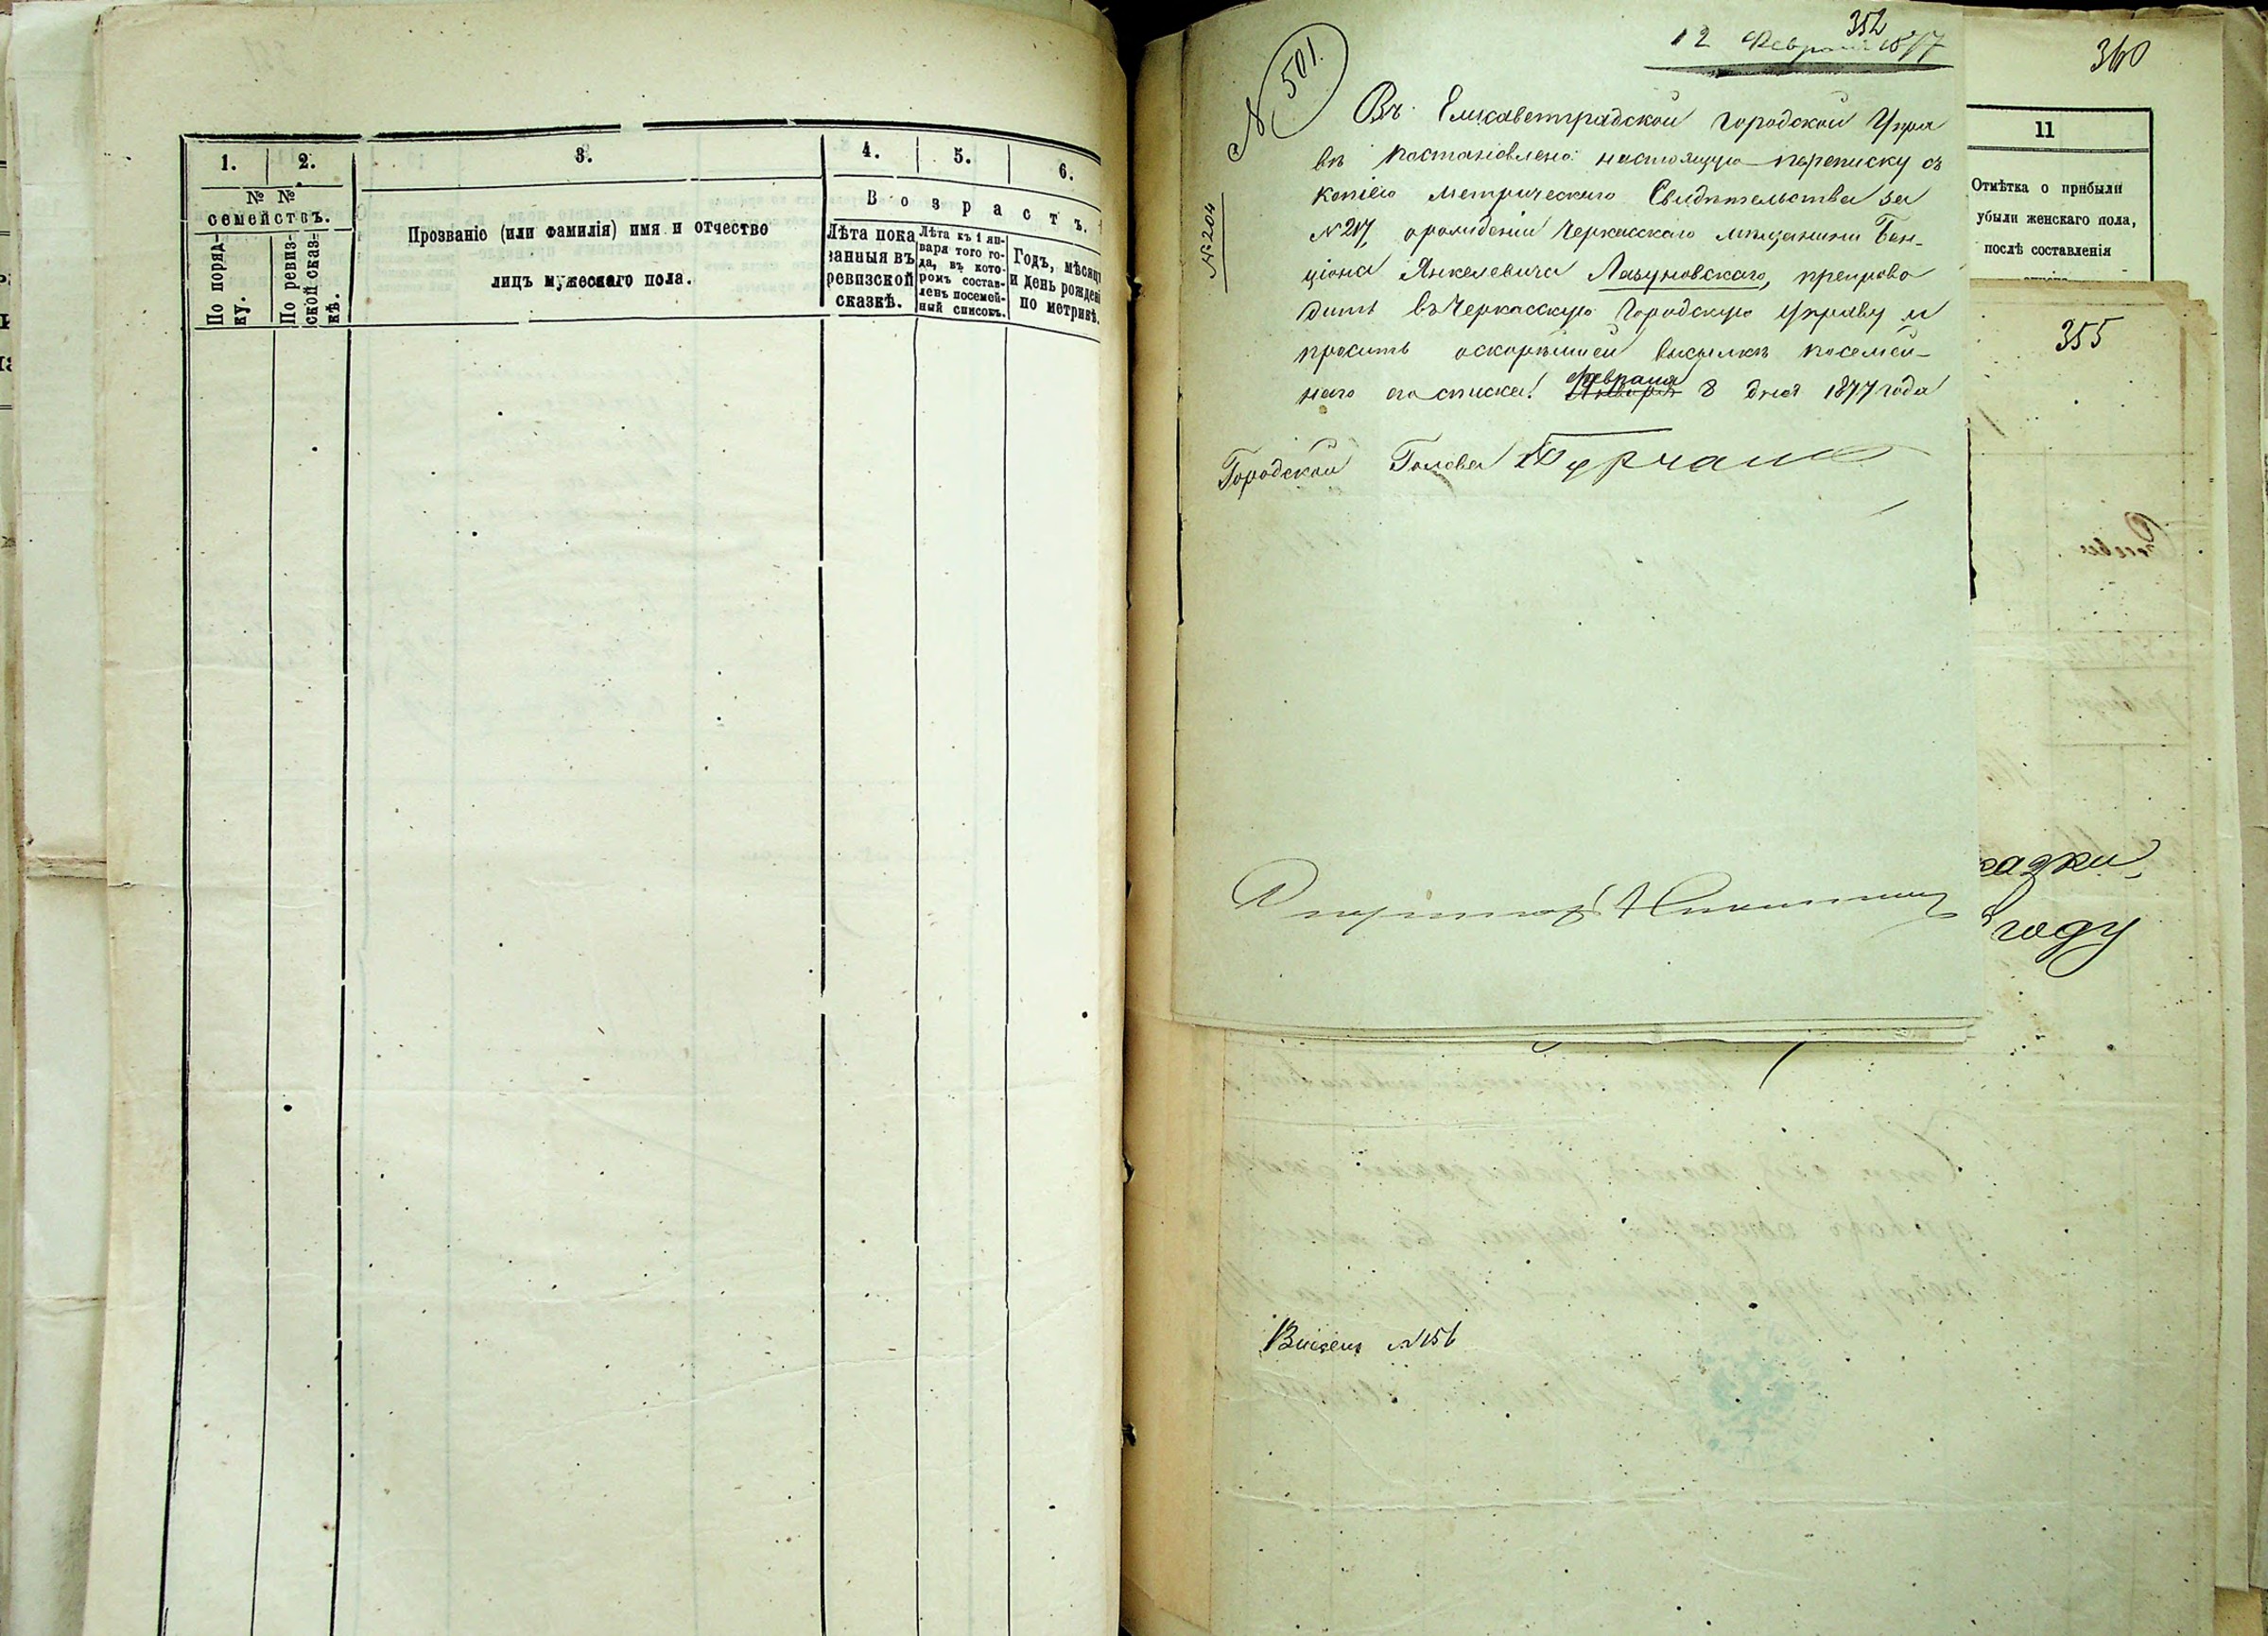 1. 2. 3. 4. 5. 6.
№ №
семействъ.
По поряд-
ку.
По ревиз-
ской сказ-
кѣ.
Прозваніе (или фамилія) имя и отчество
лицъ мужескаго пола.
Возрастъ.
Лѣта пока
занныя въ
ревизской
сказкѣ.
Лѣта къ 1 ян-
варя того го-
да, въ кото-
ромъ состав-
ленъ посемей-
ный списокъ.
Годъ, мѣсяцъ
и день рожден
по метрикѣ.
352
12 Февраля 1877
№ 501.
№ 204
Въ Елисаветградской Городской Упра
вѣ постановлено: настоящую переписку съ
копіею метрическаго Свидѣтельства за
№ 217, орожденіи Черкасскаго мѣщанина Бен-
ціона Янкелевича Лагуновскаго, препрово
дить въ Черкасскую Городскую Управу и
просить оскорѣйшей высылкѣ посемей-
наго его списка. Февраля 8 дня 1877 года
Городской Голова
360
11
Отмѣтка о прибыли
убыли женскаго пола,
послѣ составленія
355
казки
году
№ 156